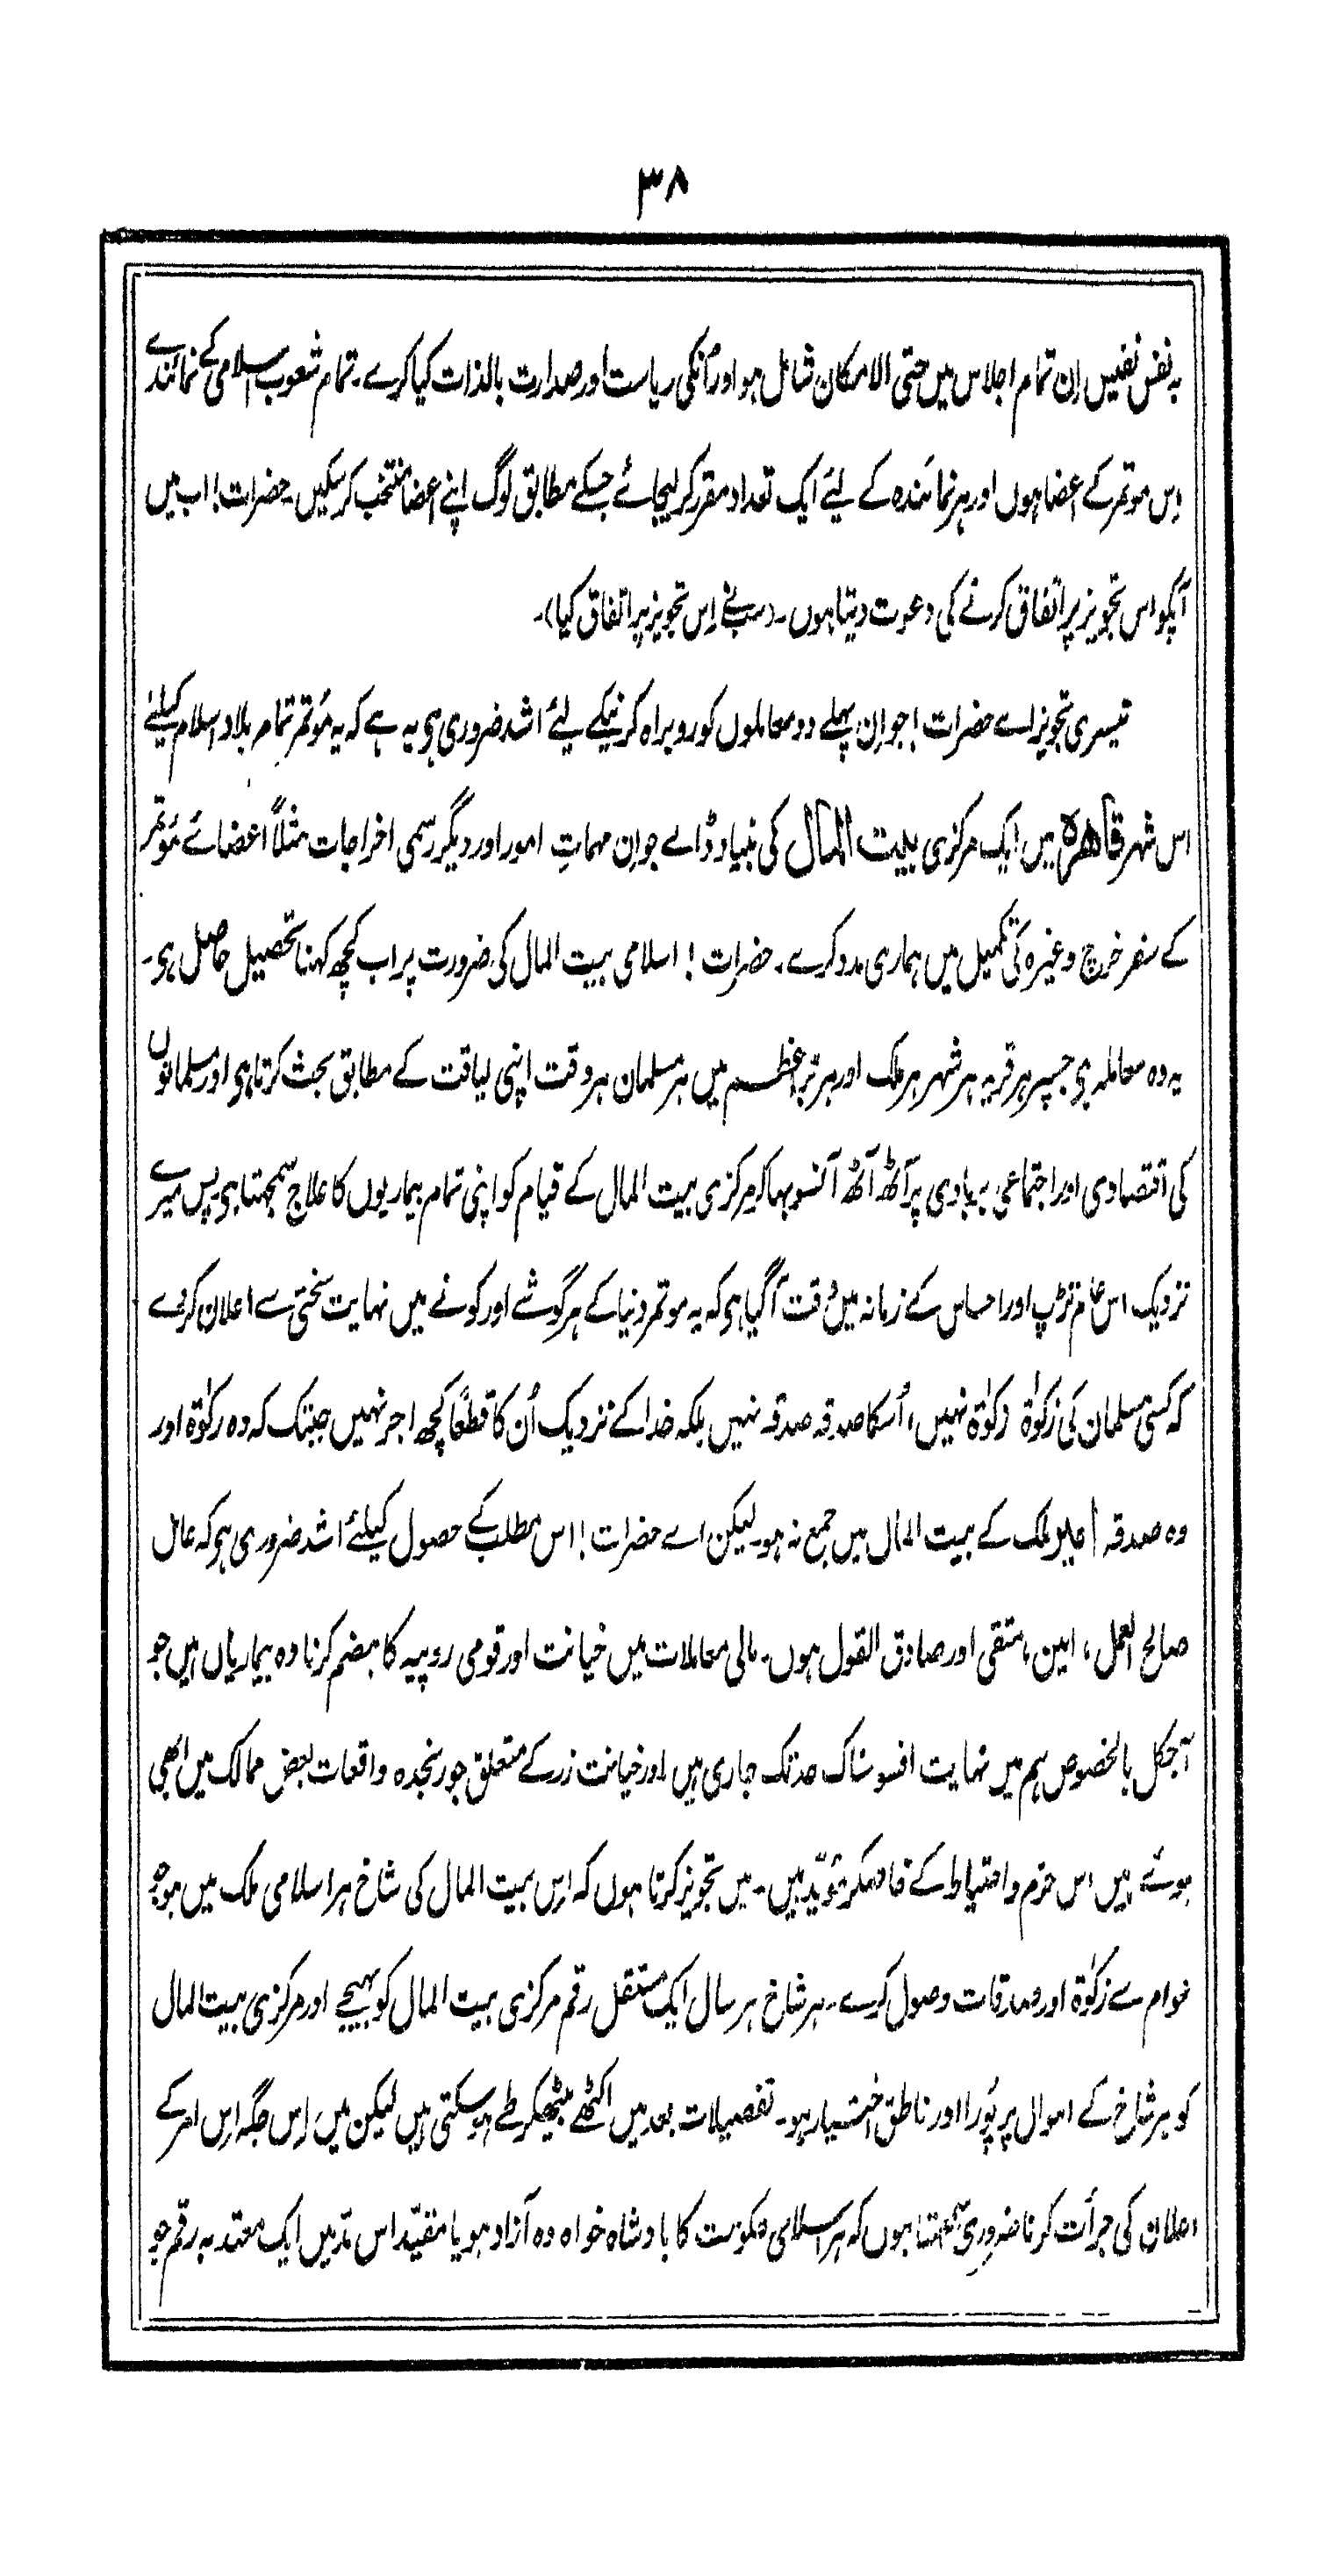 ۳۸
بہ نفس نفیس اِن تمام اجلاس میں حتی الامکان شامل ہو اور اُنکی ریاست اور صدارت بالذات کیا کرے۔ تمام شعوب اسلامی کے نمائندے
اِس موتمر کے اعضا ہوں اور ہر نمائندہ کے لیئے ایک تعداد مقرر کرلیجائے جسکے مطابق لوگ اپنے اعضا منتخب کرسکیں۔ حضرات! اب میں
آپکو اس تجویز پر اتفاق کرنے کی دعوت دیتا ہوں۔ (سبنے اِس تجویز پر اتفاق کیا)۔
تیسری تجویز اے حضرات! جو اِن پہلے دو معاملوں کو روبراہ کرنیکے لیئے اشد ضروری ہی یہ ہے کہ یہ مؤتمر تمام بلاد اسلام کیلئے
اس شہر قاھرہ میں ایک مرکزی بیت المال کی بنیاد ڈالے جو اِن مہماتِ امور اور دیگر رسمی اخراجات مثلاً اعضائے مؤتمر
کے سفر خرچ وغیرہ کی تکمیل میں ہماری مدد کرے۔ حضرات! اسلامی بیت المال کی ضرورت پر اب کچھ کہنا تحصیل حاصل ہی۔
یہ وہ معاملہ ہی جسپر ہر قریہ ہر شہر ہر ملک اور ہر برّاعظم میں ہر مسلمان ہر وقت اپنی لیاقت کے مطابق بحث کرتا ہی اور مسلمانوں
کی اقتصادی اور اجتماعی بربادی پر آٹھ آٹھ آنسو بہا کر مرکزی بیت المال کے قیام کو اپنی تمام بیماریوں کا علاج سمجھتا ہی۔ پس میرے
نزدیک اس عام تڑپ اور احساس کے زمانہ میں وقت آگیا ہی کہ یہ موتمر دنیا کے ہر گوشے اور کونے میں نہایت سختی سے اعلان کردے
کہ کسی مسلمان کی زکوٰۃ زکوٰۃ نہیں، اُسکا صدقہ صدقہ نہیں بلکہ خدا کے نزدیک اُن کا قطعًا کچھ اجر نہیں جبتک کہ وہ زکوٰۃ اور
وہ صدقہ امیر ملک کے بیت المال میں جمع نہ ہو۔ لیکن اے حضرات! اس مطلب کے حصول کیلئے اشد ضروری ہی کہ عامل
صالح العمل، امین، متقی اور صادق القول ہوں۔ مالی معاملات میں خیانت اور قومی روپیہ کا ہضم کرنا وہ بیماریاں ہیں جو
آجکل بالخصوص ہم میں نہایت افسوسناک حدتک جاری ہیں اور خیانت زر کے متعلق جو رنجدہ واقعات بعض ممالک میں ابھی
ہوئے ہیں اس حزم و احتیاط کے خاصکر مؤیّد ہیں۔ میں تجویز کرتا ہوں کہ اِس بیت المال کی شاخ ہر اسلامی ملک میں ہو جو
عوام سے زکوٰۃ اور صدقات وصول کرے۔ ہر شاخ ہر سال ایک مستقل رقم مرکزی بیت المال کو بھیجے اور مرکزی بیت المال
کو ہر شاخ کے اموال پر پُورا اور ناطق اختیار ہو۔ تفصیلات بعد میں اکٹھے بیٹھکر طے ہوسکتی ہیں لیکن میں اِس جگہ اِس امر کے
اعلان کی جرأت کرنا ضروری سمجھتا ہوں کہ ہر اسلامی حکومت کا بادشاہ خواہ وہ آزاد ہو یا مقیّد اس مدّ میں ایک معتد بہ رقم جو